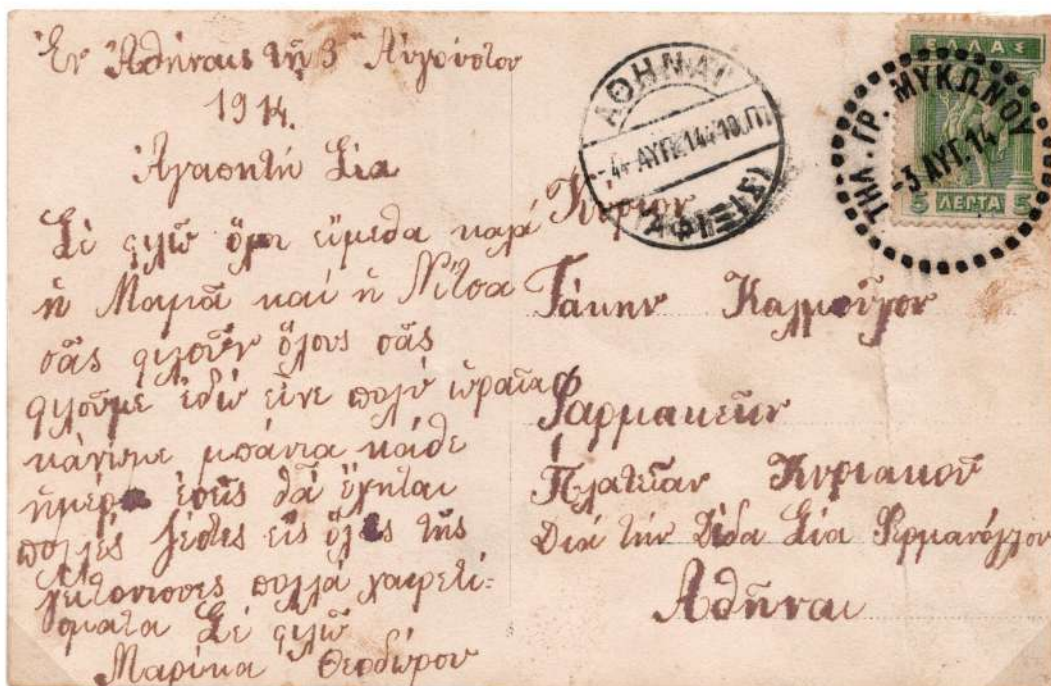 Ἐν Ἀθήναις τῇ 3 Αὐγούστου
1914.
Ἀγαπητή Σία
Σέ φιλῶ ὅλοι εἴμεθα καλά
ἡ Μαμᾶ καί ἡ Νίτσα
σᾶς φιλοῦν ὅλους σᾶς
φιλοῦμε ἐδῶ εἶνε πολύ ὡραῖα
κάνομε μπάνια κάθε
ἡμέρα ἐσεῖς θά ἔχηται
πολλές ζέστες εἰς ὅλες τῆς
γειτόνισσες πολλά χαιρετί-
σματα Σέ φιλῶ
Μαρίκα Θεοδώρου
ΑΘΗΝΑΙ
4 ΑΥΓ. 14 10.Π
(ΑΦΙΞΙΣ)
ΕΛΛΑΣ
5 ΛΕΠΤΑ 5
ΤΗΛ. ΓΡ. ΜΥΚΩΝΟΥ
-3 ΑΥΓ. 14
Κύριον
Τάκην Καλμοῦχον
Φαρμακεῖον
Πλατεῖαν Κυριακοῦ
Διά τήν Δίδα Σία Γερμανόγλου
Ἀθῆναι